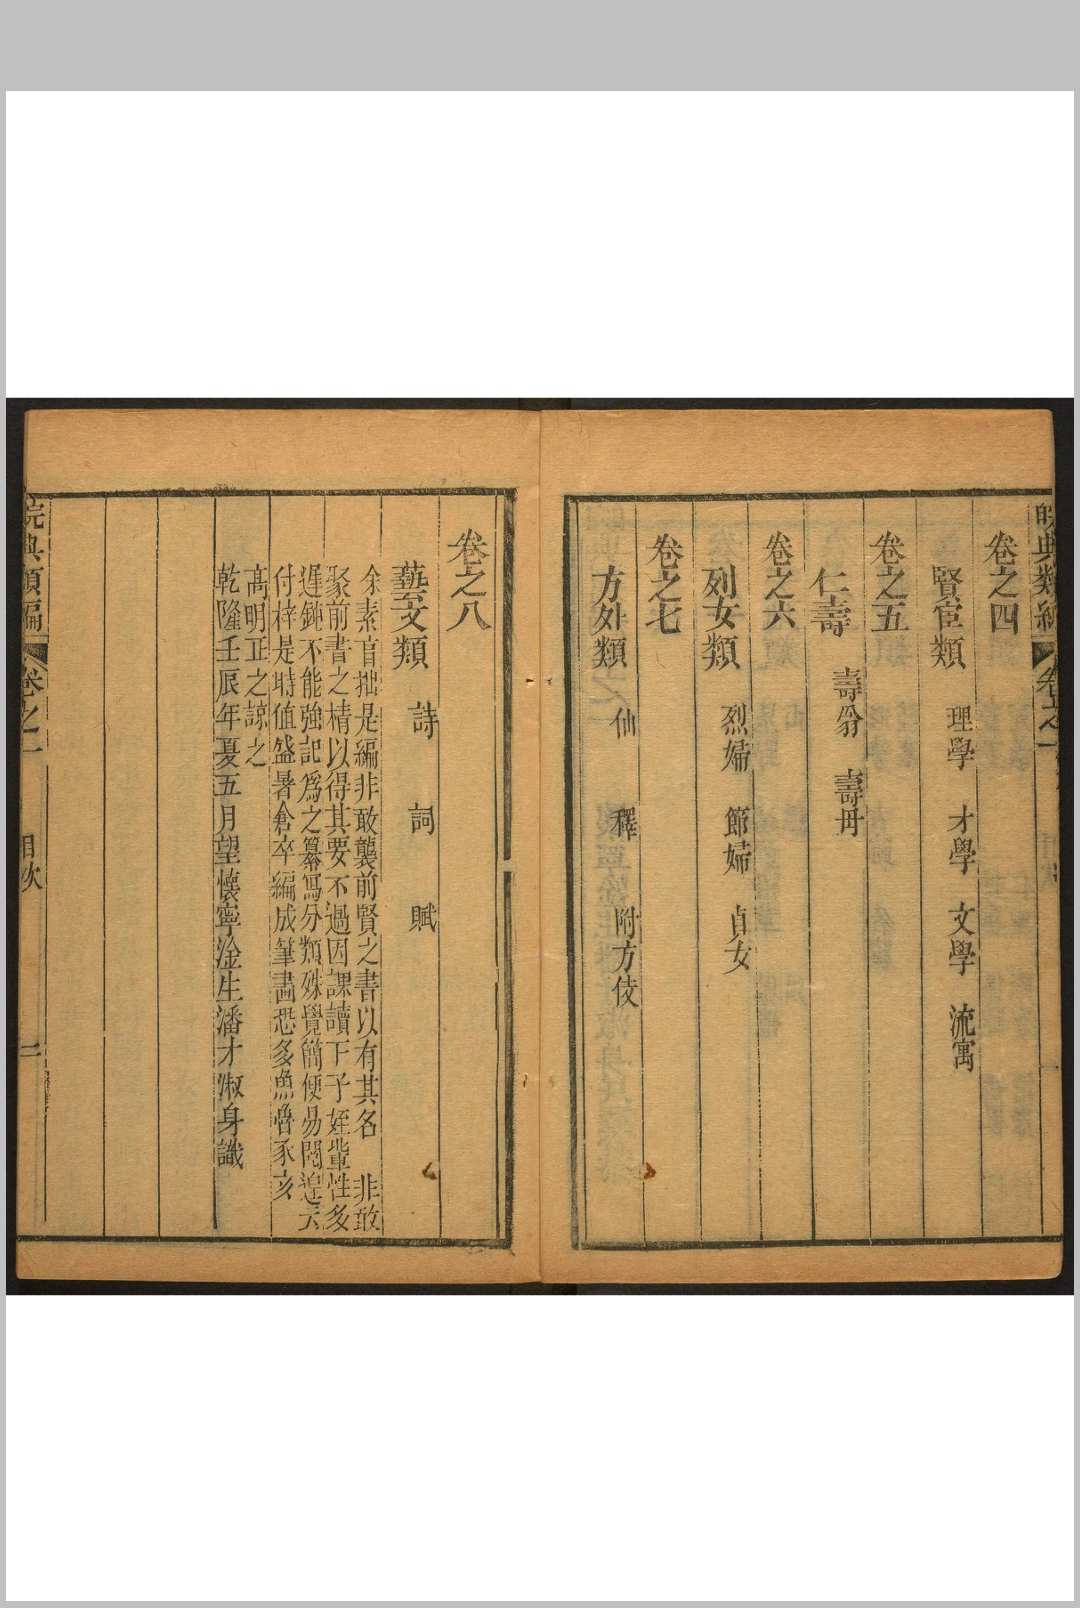 皖典類編 卷之一
卷之四
賢宦類 理學 才學 文學 流寓
卷之五
仁壽 壽翁 壽母
卷之六
列女類 烈婦 節婦 貞女
卷之七
方外類 仙 釋 附方伎
卷之八
藝文類 詩 詞 賦
余素盲拙是編非敢襲前賢之書以有其名 非敢
聚前書之精以得其要不過因課讀下子姪輩性多
遲鈍不能強記爲之纂寫分類殊覺簡便易閱遑云
付梓是時值盛暑倉卒編成筆畫恐多魚魯豕亥
高明正之諒之
乾隆壬辰年夏五月望懷寧淦生潘才淑身識
皖典類編 卷之一 目次 二